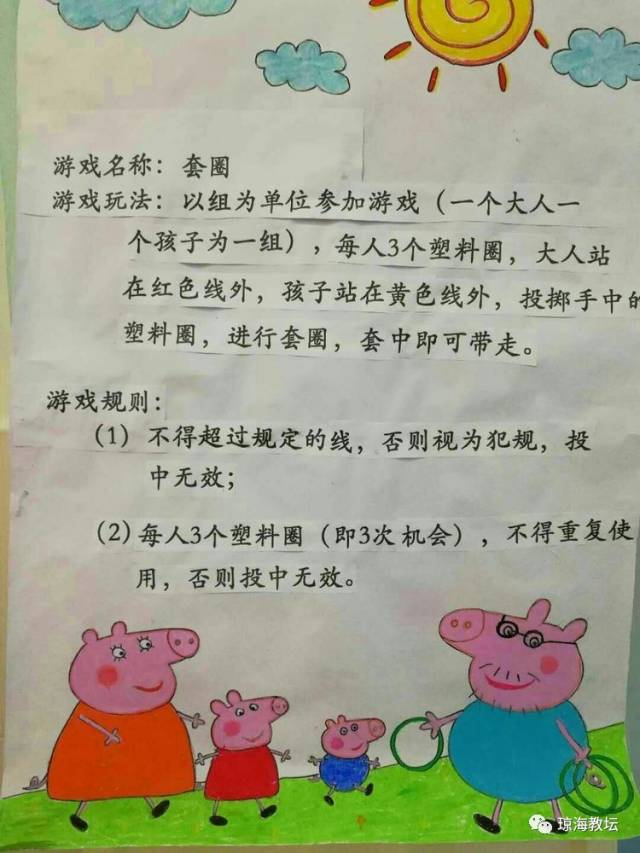 游戏名称：套圈
游戏玩法：以组为单位参加游戏（一个大人一
个孩子为一组），每人3个塑料圈，大人站
在红色线外，孩子站在黄色线外，投掷手中的
塑料圈，进行套圈，套中即可带走。
游戏规则：
（1）不得超过规定的线，否则视为犯规，投
中无效；
（2）每人3个塑料圈（即3次机会），不得重复使
用，否则投中无效。
琼海教坛